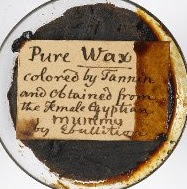 Pure Wax
colored by Tannin
and obtained from
the Female Egyptian
mummy
by Ebullition